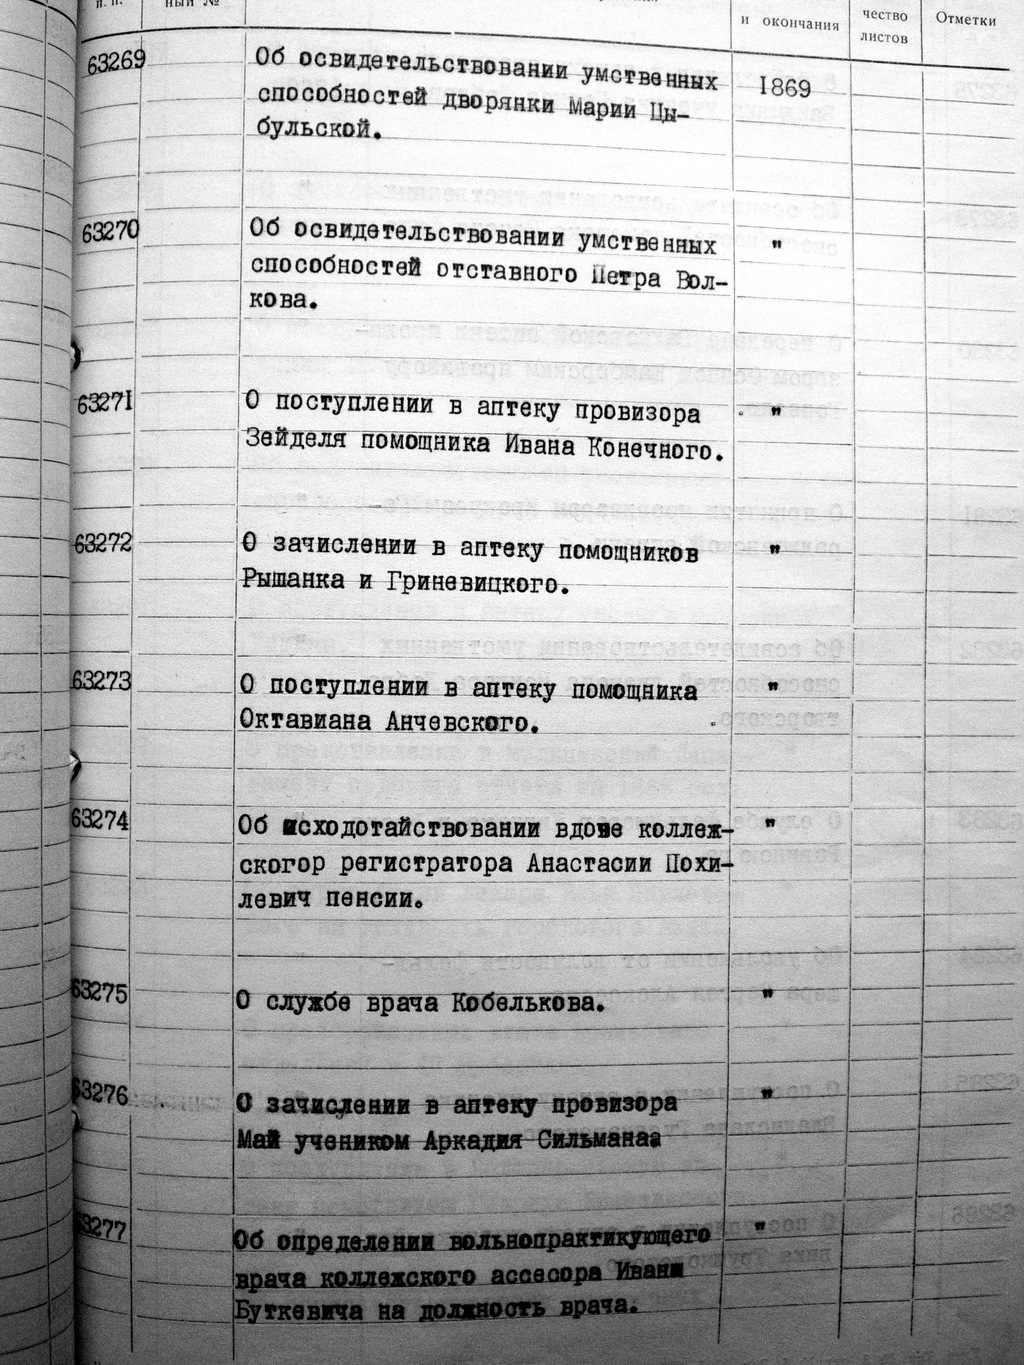 п. п.
ный №
и окончания
чество
листов
Отметки
63269
Об освидетельствовании умственных
1869
способностей дворянки Марии Цы-
бульской.
63270
Об освидетельствовании умственных
"
способностей отставного Петра Вол-
кова.
63271
О поступлении в аптеку провизора
"
Зейделя помощника Ивана Конечного.
63272
О зачислении в аптеку помощников
"
Рышанка и Гриневицкого.
63273
О поступлении в аптеку помощника
"
Октавиана Анчевского.
63274
Об исходотайствовании вдове коллеж-
"
скогор регистратора Анастасии Похи-
левич пенсии.
63275
О службе врача Кобелькова.
"
63276
О зачислении в аптеку провизора
"
Май учеником Аркадия Сильмана
63277
Об определении вольнопрактикующего
"
врача коллежского ассесора Ивана
Буткевича на должность врача.